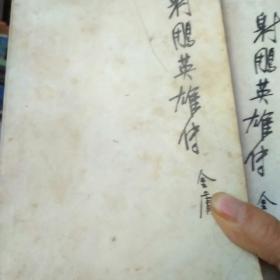 射鵰英雄传
金庸
射鵰英雄传
金